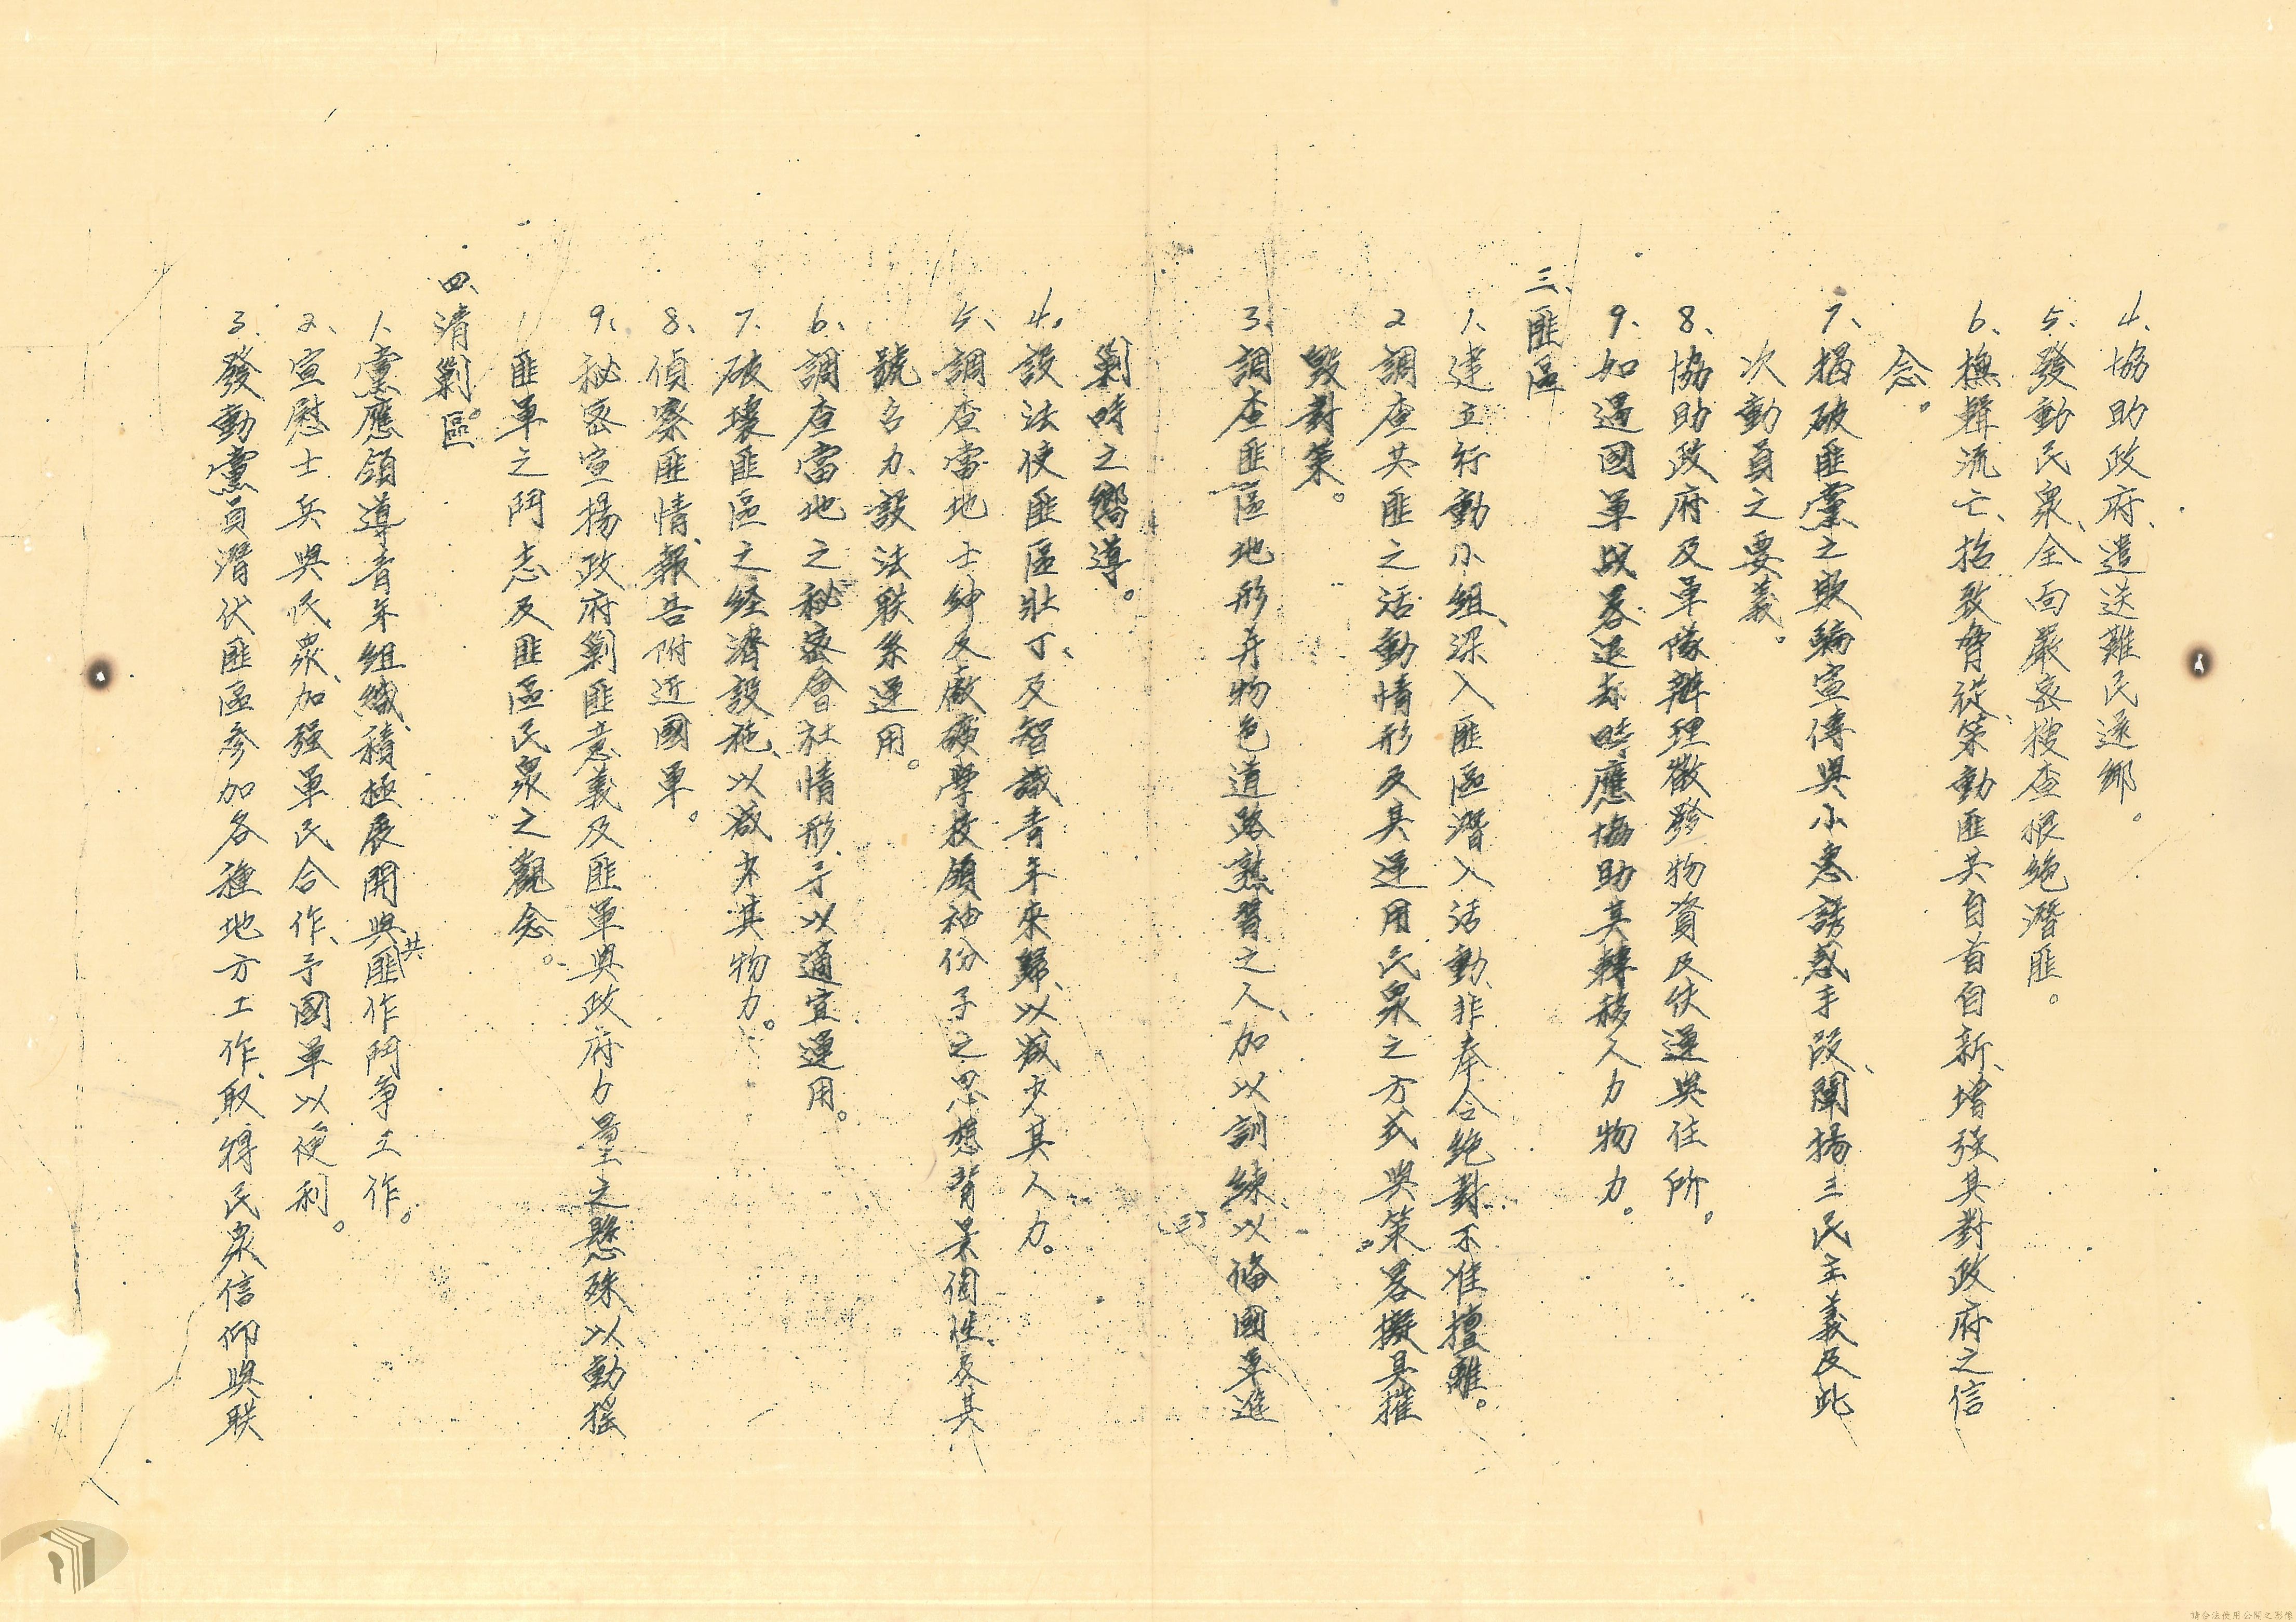 4、協助政府、遣送難民返鄉。
5、發動民眾、全面嚴密搜查根絕潛匪。
6、撫輯流亡、招致脅從、策動匪共自首自新、增強其對政府之信
念。
7、揭破匪黨之欺騙宣傳與小惠誘惑手段、闡揚三民主義及此
次動員之要義。
8、協助政府及軍隊辦理徵發物資及伕運與住所。
9、如遇國軍戰畧退去時應協助其轉移人力物力。
三、匪區
1、建立行動小組、深入匪區潛入活動、非奉令絕對不准擅離。
2、調查其匪之活動情形及其運用民眾之方式與策畧擬具摧
毀對策。
3、調查匪區地形并物色道路熟習之人、加以訓練以備國軍進
剿時之嚮導。
4、設法使匪區壯丁、及智識青年來歸、以減少其人力。
5、調查當地士紳及廠礦學校領袖份子之思想背景個性、及其
號召力、設法联系運用。
6、調查當地之秘密會社情形、予以適宜運用。
7、破壞匪區之経濟設施、以減少其物力。
8、偵察匪情、報告附近國軍。
9、秘密宣揚政府剿匪意義及匪軍與政府力量之懸殊以動搖
匪軍之鬥志及匪區民眾之觀念。
四、清剿區
1、黨應領導青年組織、積極展開與匪共作鬥爭工作。
2、宣慰士兵與民眾、加強軍民合作、予國軍以便利。
3、發動黨員潛伏匪區參加各種地方工作、取得民眾信仰與联
(三)
請合法使用公開之影像